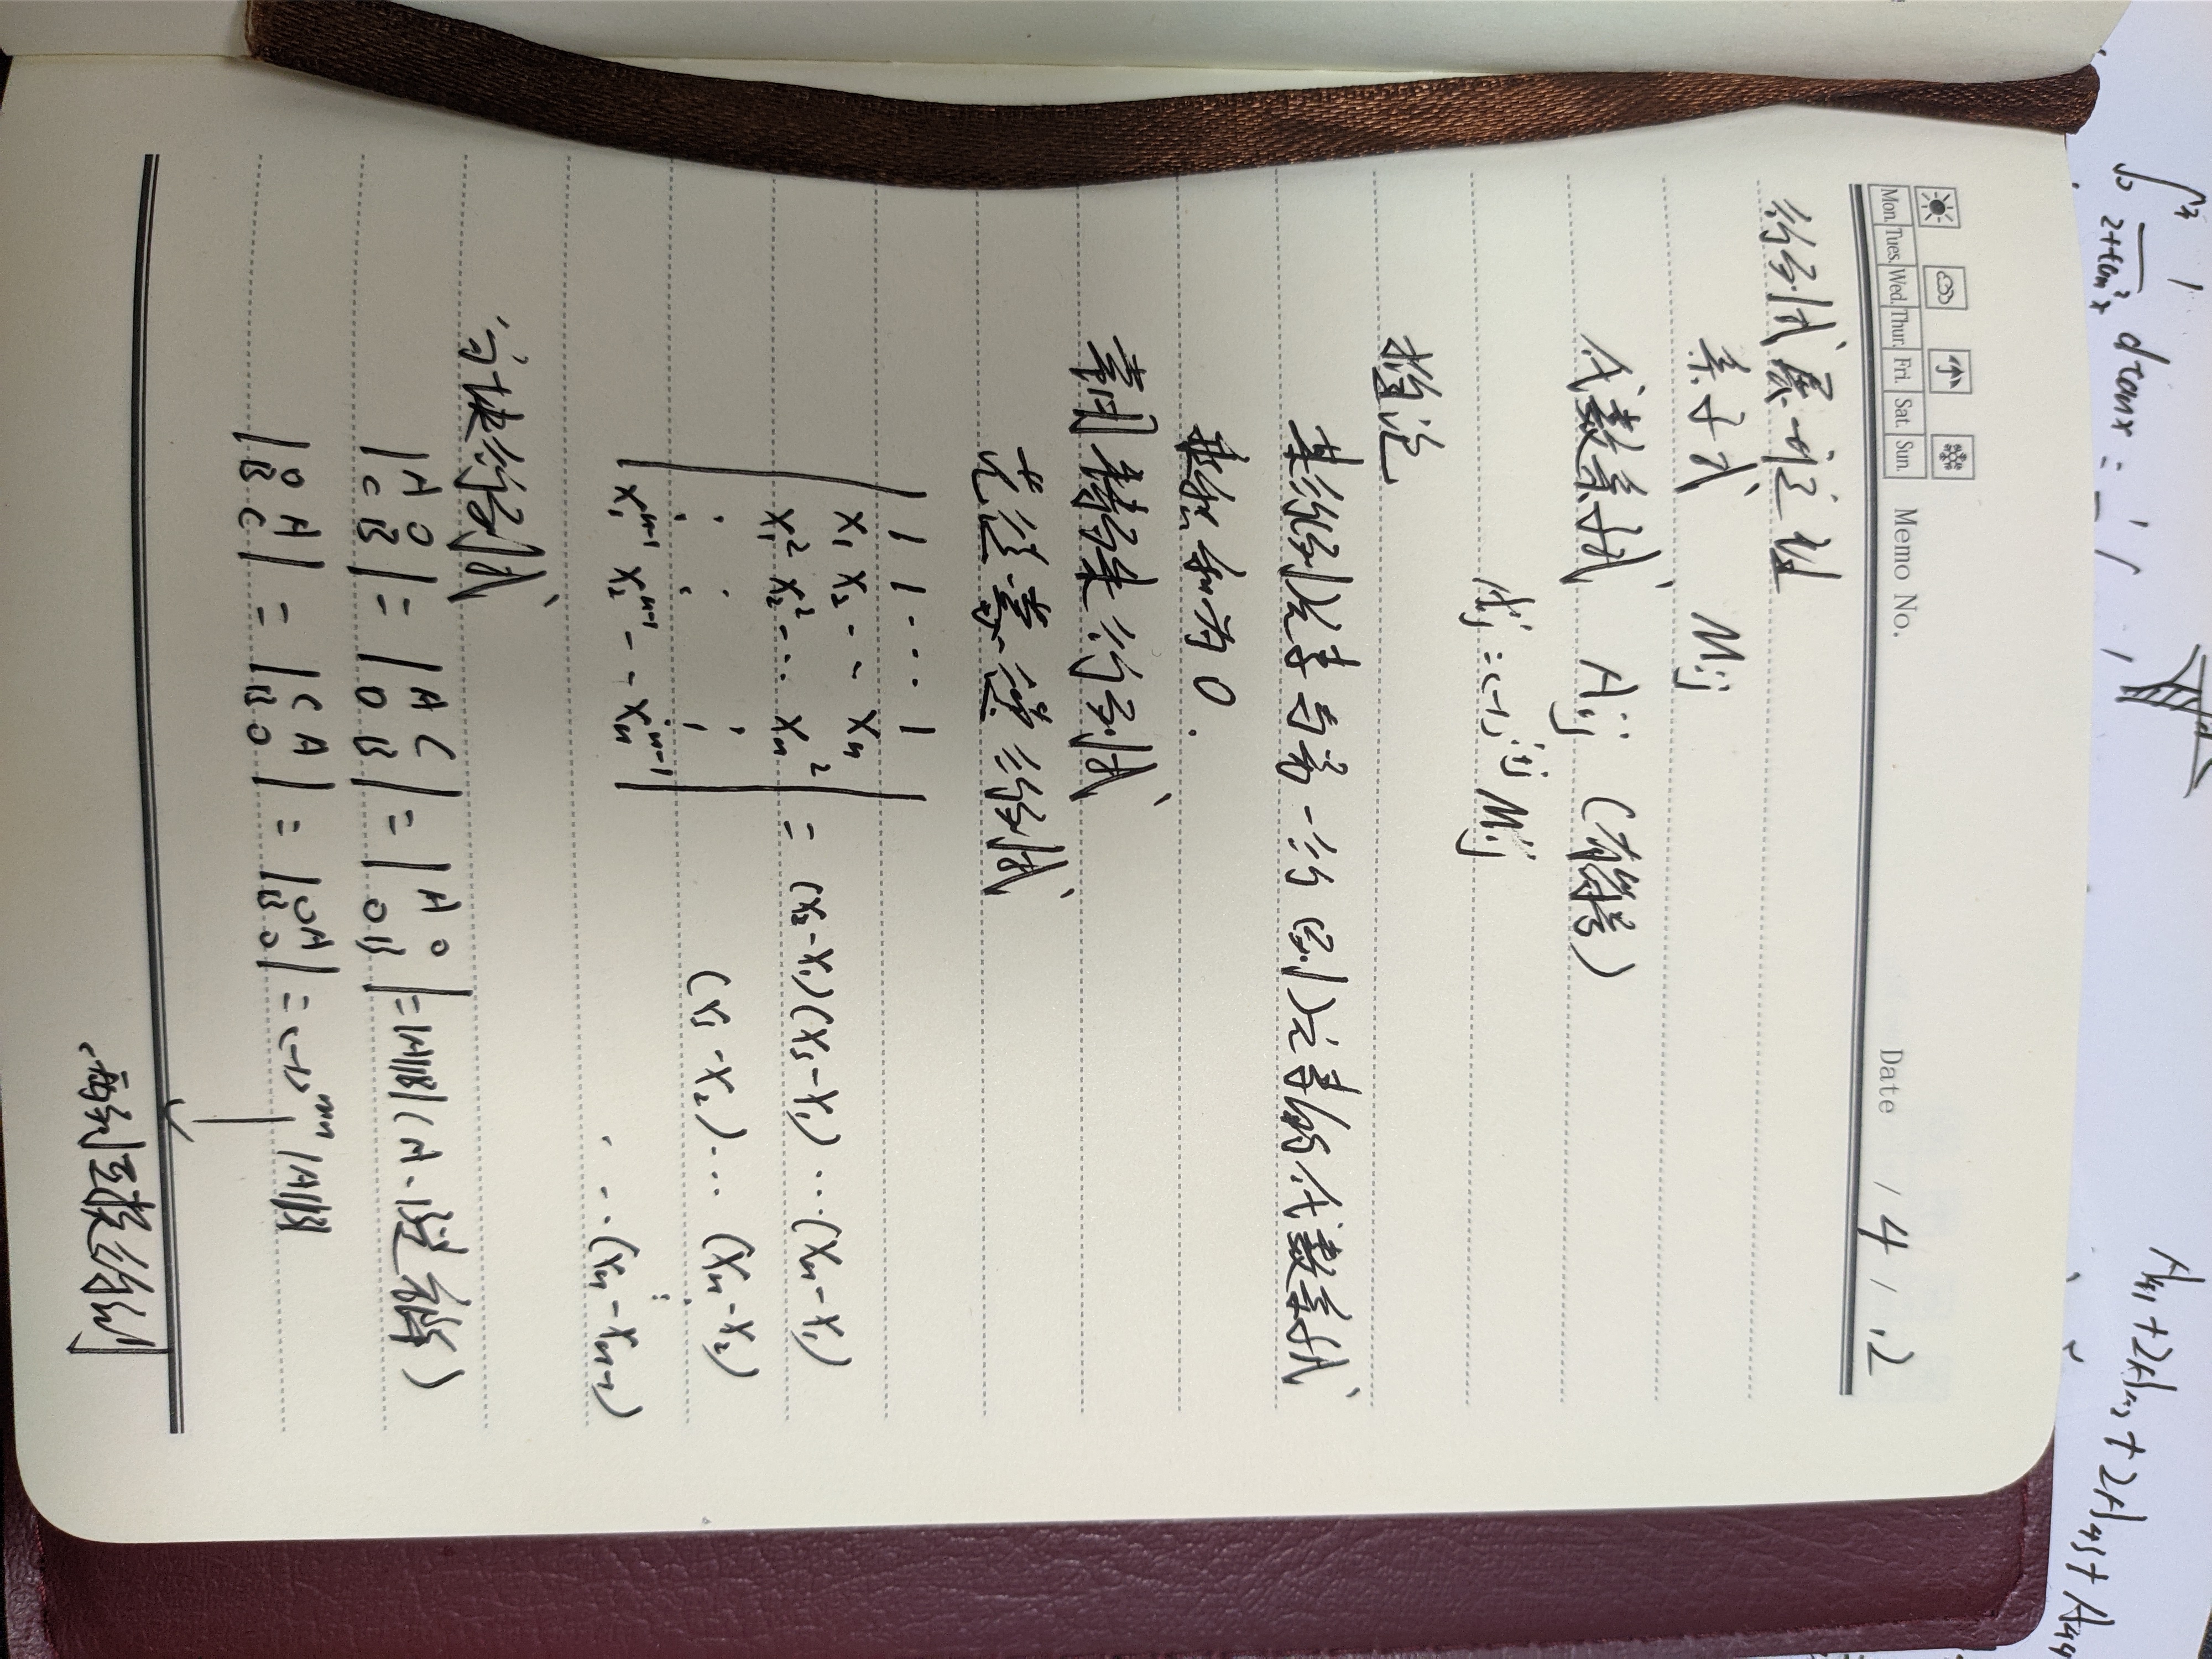 Mon. Tues. Wed. Thur. Fri. Sat. Sun. Memo No. Date / 4 / .2
行列式展开定理
余子式 Mij
代数余子式 Aij (有符号)
Aij = (-1)^{i+j} Mij
推论
某行(列)元素与另一行(列)元素的代数余子式
乘积和为0.
常用特殊行列式
范德蒙德行列式
| 1 1 ... 1 |
| x1 x2 -- xn |
| x1^2 x2^2 -.. xn^2 | = (x2-x1)(x3-x1)...(xn-x1)
(x3-x2)...(xn-x2)
| x1^{n-1} x2^{n-1} --- xn^{n-1} | ...(xn-xn-1)
分块行列式
|A O; C B| = |A C; O B| = |A O; O B| = |A||B|
|O A; B C| = |C A; B O| = |O A; B O| = (-1)^{mn} |A||B|
两列互换
1/(2+tan²x) dtanx =
A41+2A42+2A43+A44